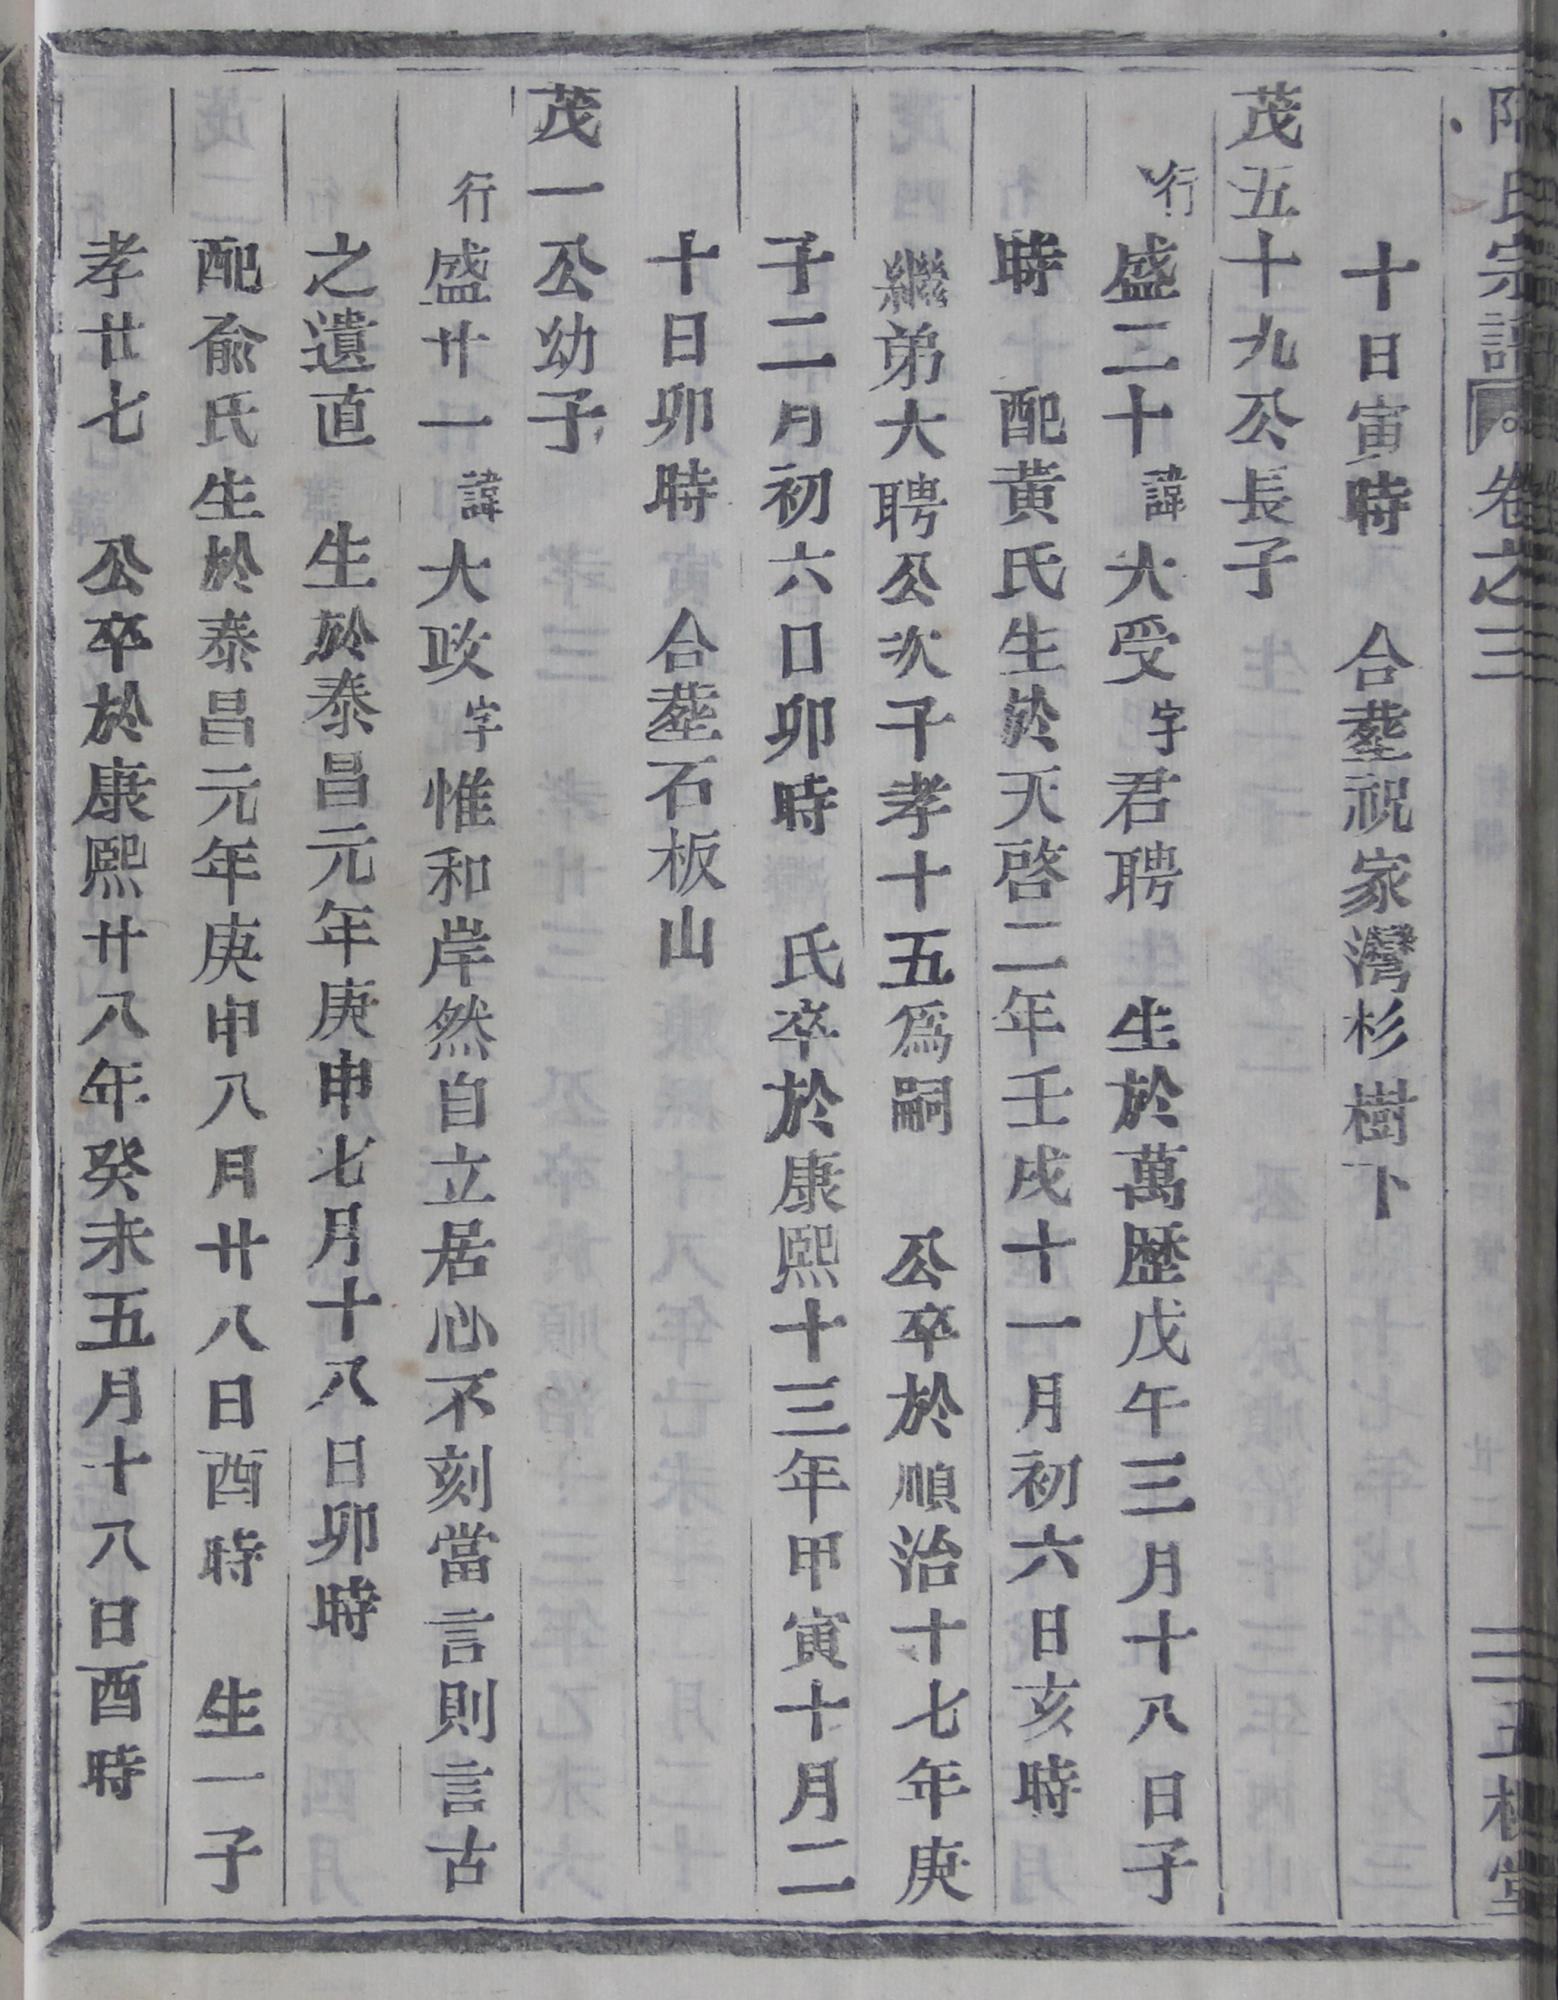 氏宗譜 卷之三 三 五 堂
十日寅時 合塟祝家灣杉樹下
茂五十九公長子
行盛三十諱大受字君聘 生於萬歷戊午三月十八日子
時 配黃氏生於天啓二年壬戌十一月初六日亥時
繼弟大聘公次子孝十五爲嗣 公卒於順治十七年庚
子二月初六日卯時 氏卒於康熙十三年甲寅十月二
十日卯時 合塟石板山
茂一公幼子
行盛廿一諱大政字惟和岸然自立居心不刻當言則言古
之遺直 生於泰昌元年庚申七月十八日卯時
配俞氏生於泰昌元年庚申八月廿八日酉時 生一子
孝廿七 公卒於康熙廿八年癸未五月十八日酉時